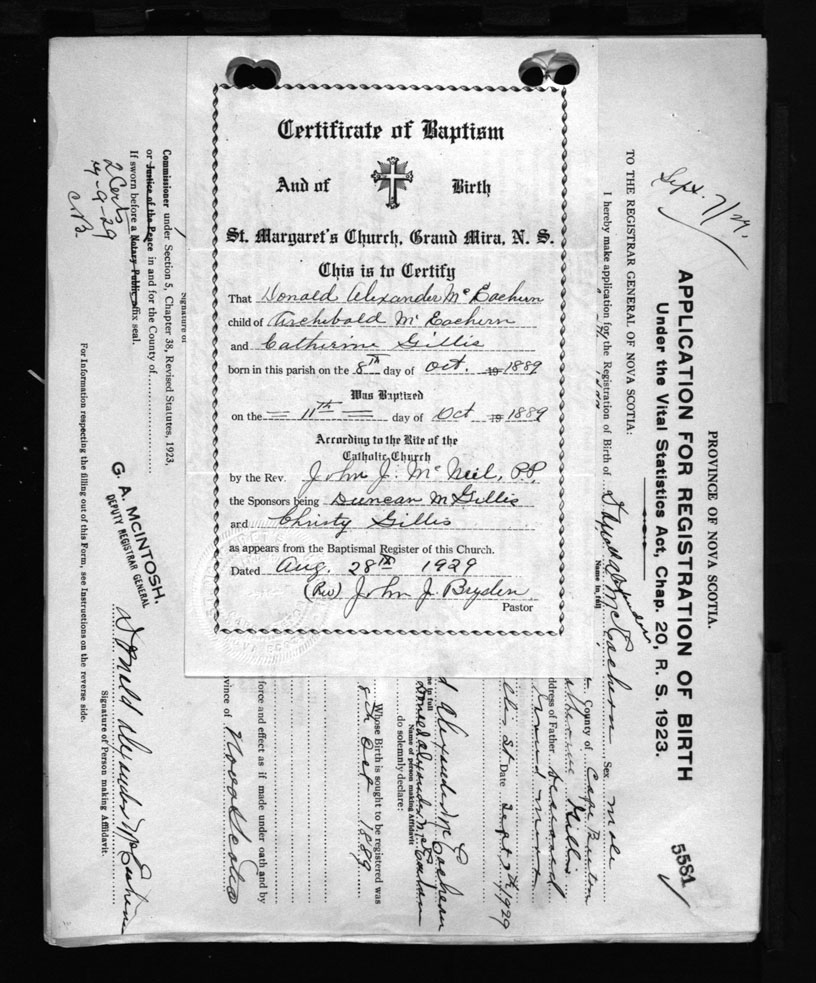 Certificate of Baptism
And of Birth
St. Margaret's Church, Grand Mira, N. S.
This is to Certify
That Donald Alexander McEachern
child of Archibald McEachern
and Catherine Gillis
born in this parish on the 8TH day of Oct. 19 1889
Was Baptized
on the 11TH day of Oct 19 1889
According to the Rite of the
Catholic Church
by the Rev. John J. McNeil, P.P.
the Sponsors being Duncan M Gillis
and Christy Gillis
as appears from the Baptismal Register of this Church.
Dated Aug. 28TH 1929
(Rev) John J. Bryden
Pastor
PROVINCE OF NOVA SCOTIA.
APPLICATION FOR REGISTRATION OF BIRTH
Under the Vital Statistics Act, Chap. 20, R. S. 1923.
5581
Sept. 7/29.
TO THE REGISTRAR GENERAL OF NOVA SCOTIA:
I hereby make application for the Registration of Birth of Donald Alexander McEachern Sex male
Name in full
County of Cape Breton
Catherine Gillis
ddress of Father deceased
Grand Mira
St Date Sept 7th, 1929
d Alexander McEachern
ne in full
Donald Alexander McEachern
Name of person making Affidavit
do solemnly declare:
Whose Birth is sought to be registered was
8th Oct 1889
force and effect as if made under oath and by
vince of Nova Scotia
Signature of
Commissioner under Section 5, Chapter 38, Revised Statutes, 1923,
or Justice of the Peace in and for the County of
If sworn before a Notary Public, affix seal.
2 Certs
4-9-29
C.B.
G. A. McINTOSH.
DEPUTY REGISTRAR GENERAL
Donald Alexander McEachern
Signature of Person making Affidavit.
For Information respecting the filling out of this Form, see Instructions on the reverse side.